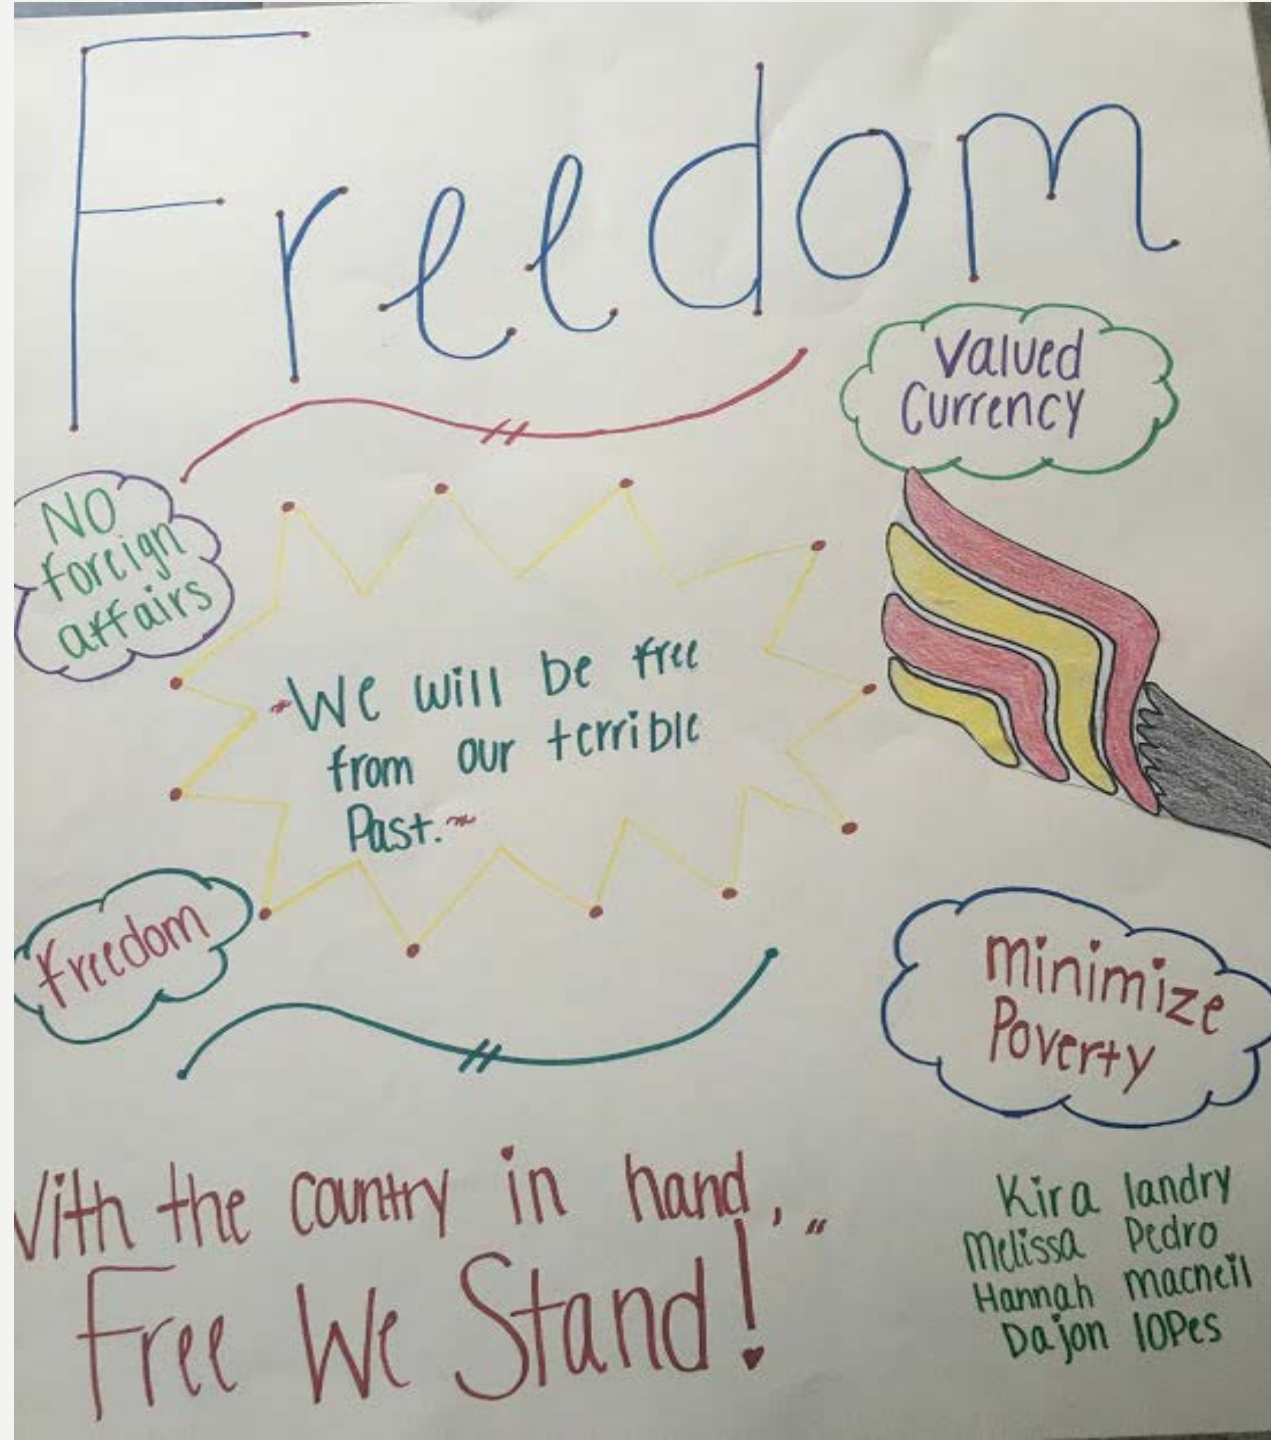 Freedom
Valued
Currency
NO
foreign
affairs
~We will be free
from our terrible
Past.~
Freedom
Minimize
Poverty
With the country in hand, "
Free We Stand!
Kira landry
Melissa Pedro
Hannah macneil
Dajon lOPes